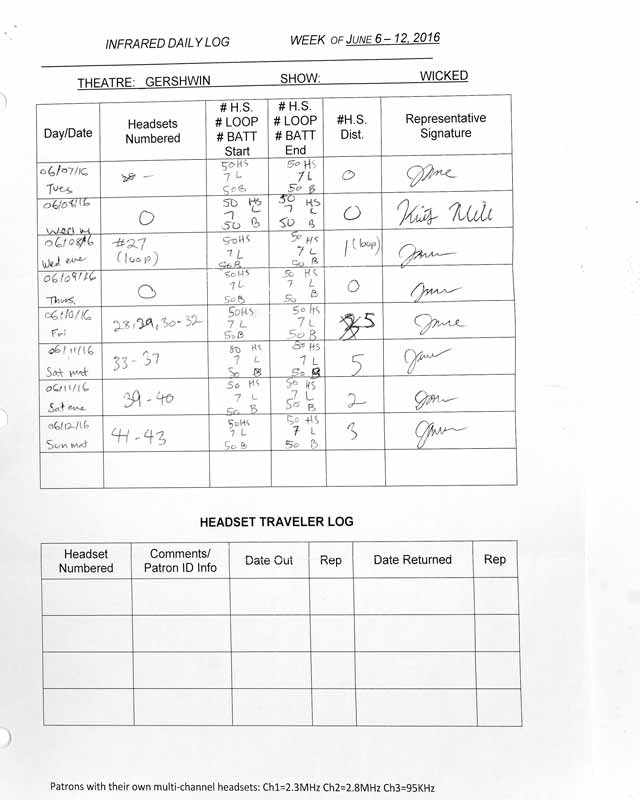 INFRARED DAILY LOG WEEK OF JUNE 6 – 12, 2016
THEATRE: GERSHWIN SHOW: WICKED
Day/Date Headsets Numbered # H.S. # LOOP # BATT Start # H.S. # LOOP # BATT End #H.S. Dist. Representative Signature
06/07/16 Tues – 50HS 7 L 50B 50 HS 7L 50 B 0
06/08/16 0 50 HS 7 L 50 B 50 HS 7 L 50 B 0
06/08/16 Wed eve #27 (loop) 50HS 7 L 50B 50 HS 7 L 50 B 1 (loop)
06/09/16 Thurs 0 50HS 7L 50B 50 HS 7 L 50 B 0
06/10/16 Fri 28, 29, 30-32 50HS 7 L 50B 50HS 7 L 50 B 5
06/11/16 Sat mat 33 - 37 50 HS 7 L 50 B 50 HS 7 L 50 B 5
06/11/16 Sat eve 39 - 40 50 HS 7 L 50 B 50 HS 7 L 50 B 2
06/12/16 Sun mat 41 - 43 50HS 7 L 50 B 50 HS 7 L 50 B 3
HEADSET TRAVELER LOG
Headset Numbered Comments/ Patron ID Info Date Out Rep Date Returned Rep
Patrons with their own multi-channel headsets: Ch1=2.3MHz Ch2=2.8MHz Ch3=95KHz